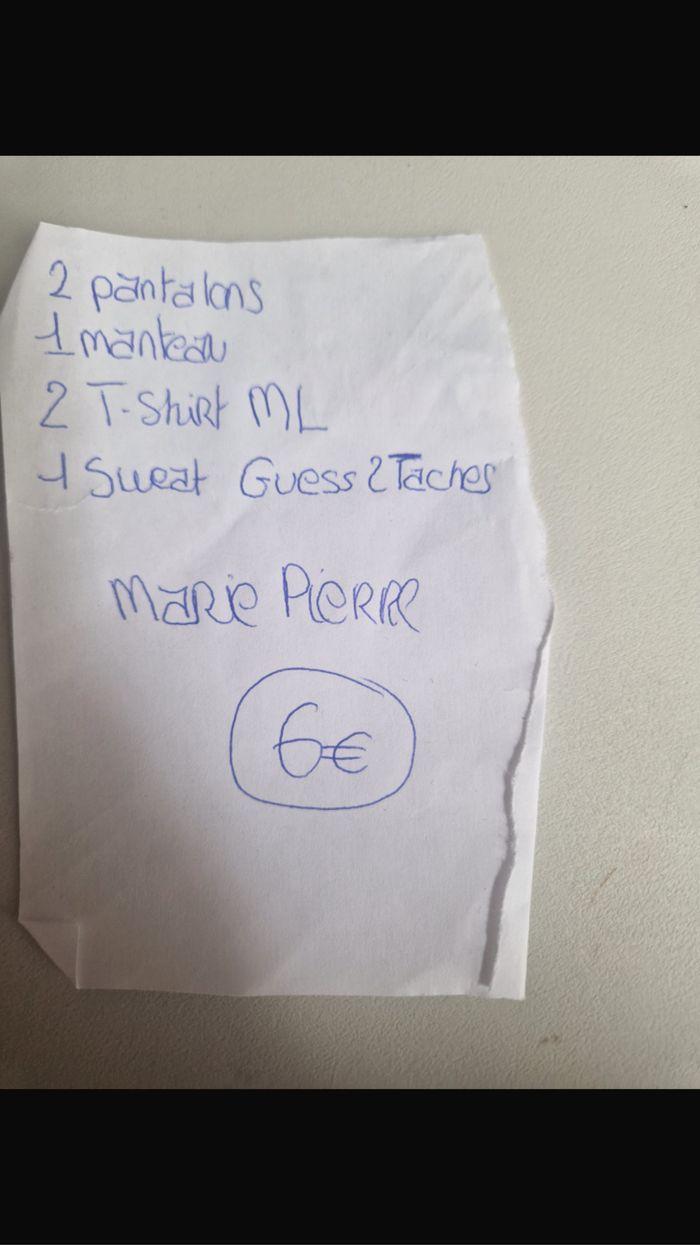 2 pantalons
1 manteau
2 T-Shirt ML
1 Sweat Guess 2 Taches
Marie Pierre
6€